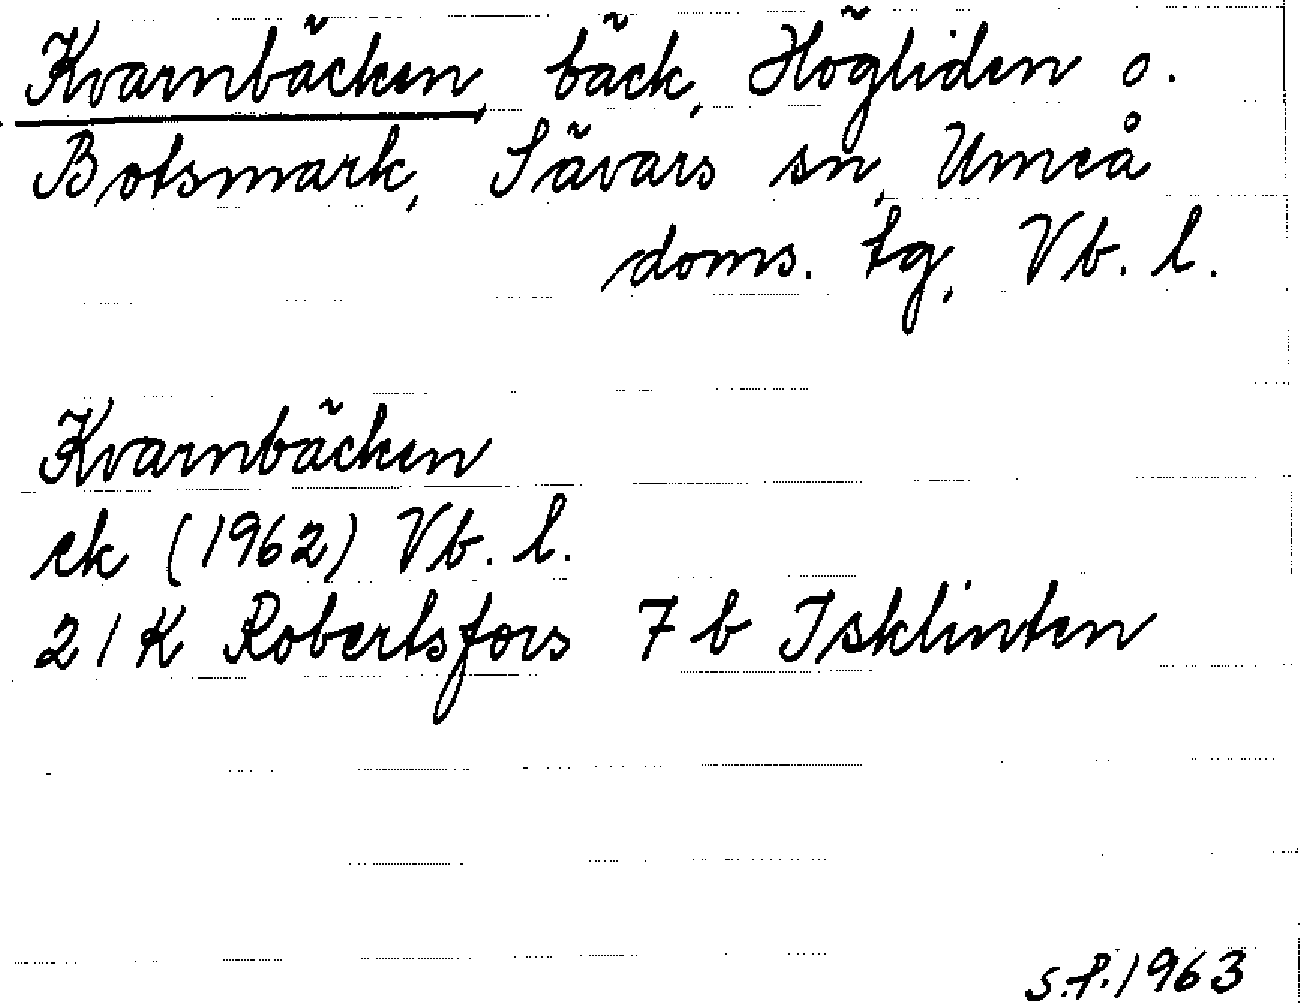 Kvarnbäcken, bäck, Högliden o.
Botsmark, Sävars sn, Umeå
doms. tg, Vb. l.
Kvarnbäcken
ek (1962) Vb. l.
21K Robertsfors 7 b Isklinten
S.f. 1963